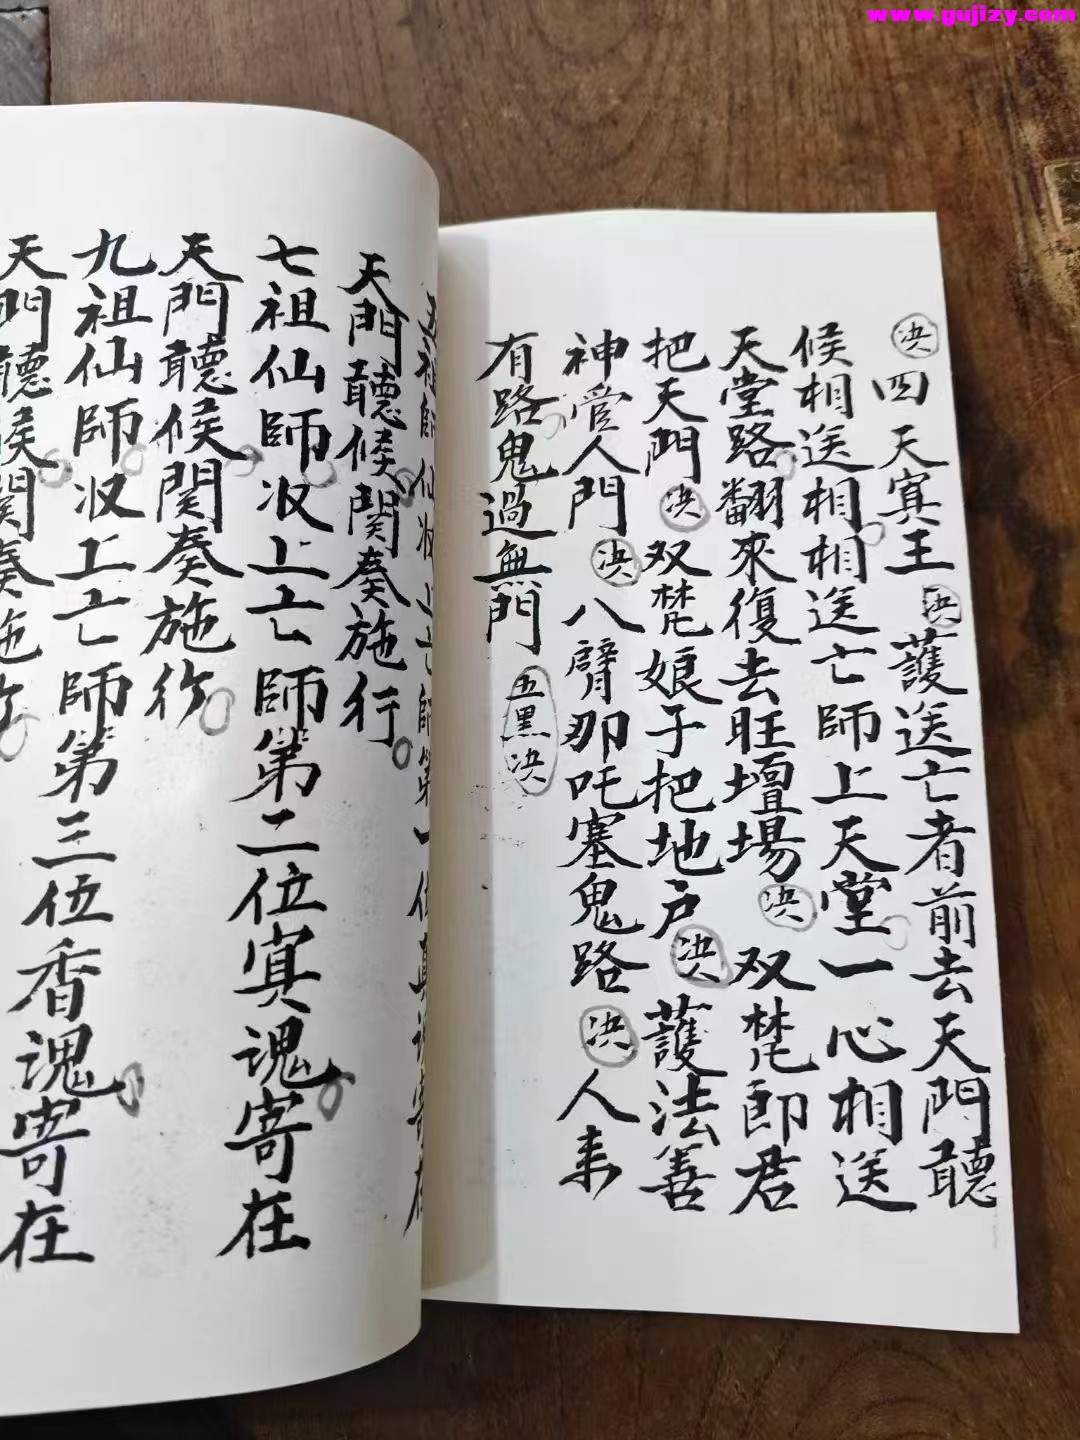 www.gujizy.com
决四天寘王决護送亡者前去天門聽
候相送相相送亡師上天堂一心相送
天堂路翻來復去旺壇場决双梵郎君
把天門决双梵娘子把地户决護法善
神管人門决八臂那吒塞鬼路决人来
有路鬼過無門五黑决
五祖師仙收上亡師第一位真魂寄在
天門聽候関奏施行
七祖仙師収上亡師第二位寘魂寄在
天門聽候関奏施行
九祖仙師収上亡師第三伍香魂寄在
天門聽候関奏施行